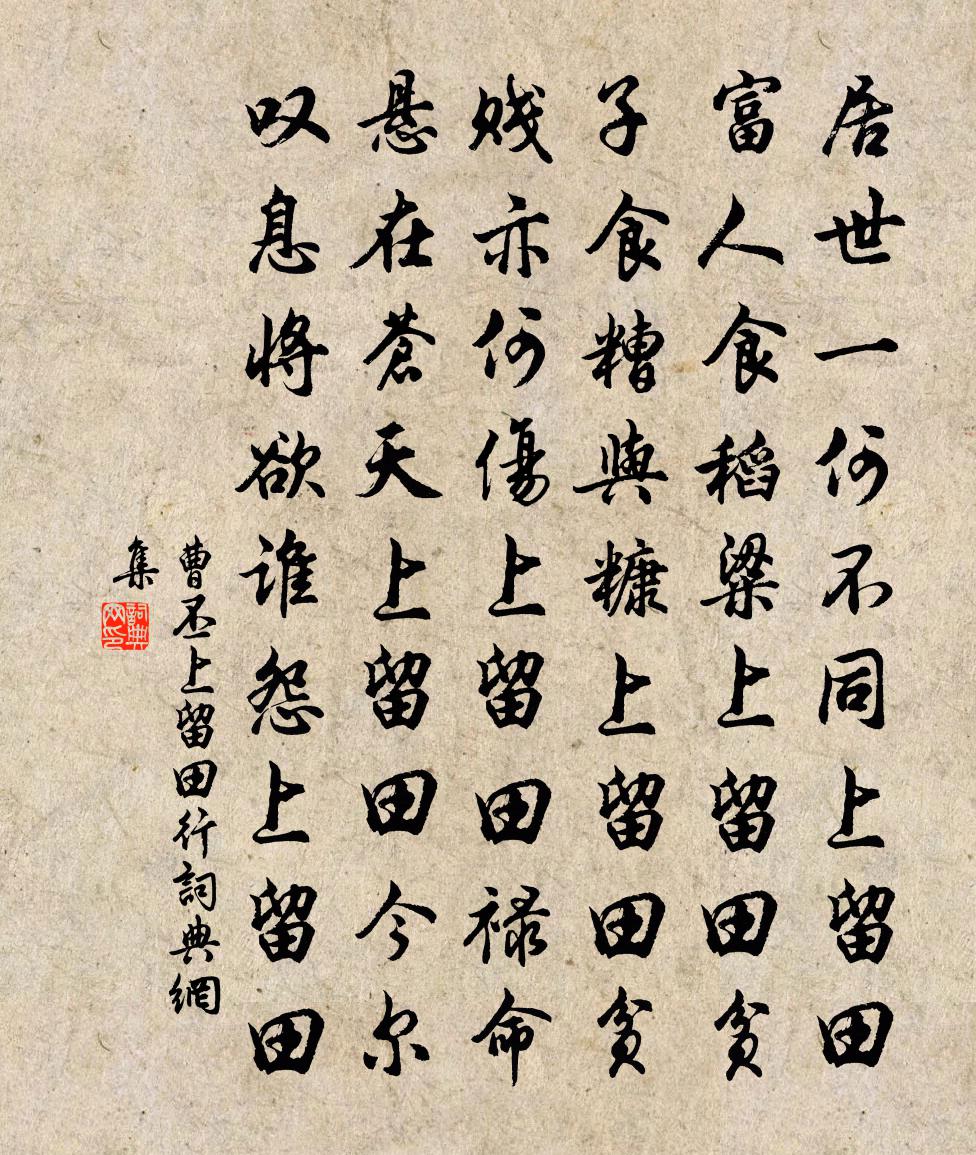 居世一何不同上留田
富人食稻粱上留田貧
子食糟與糠上留田貧
賤亦何傷上留田禄命
懸在蒼天上留田今尔
叹息將欲谁怨上留田
曹丕上留田行詞典網
集
詞典網印